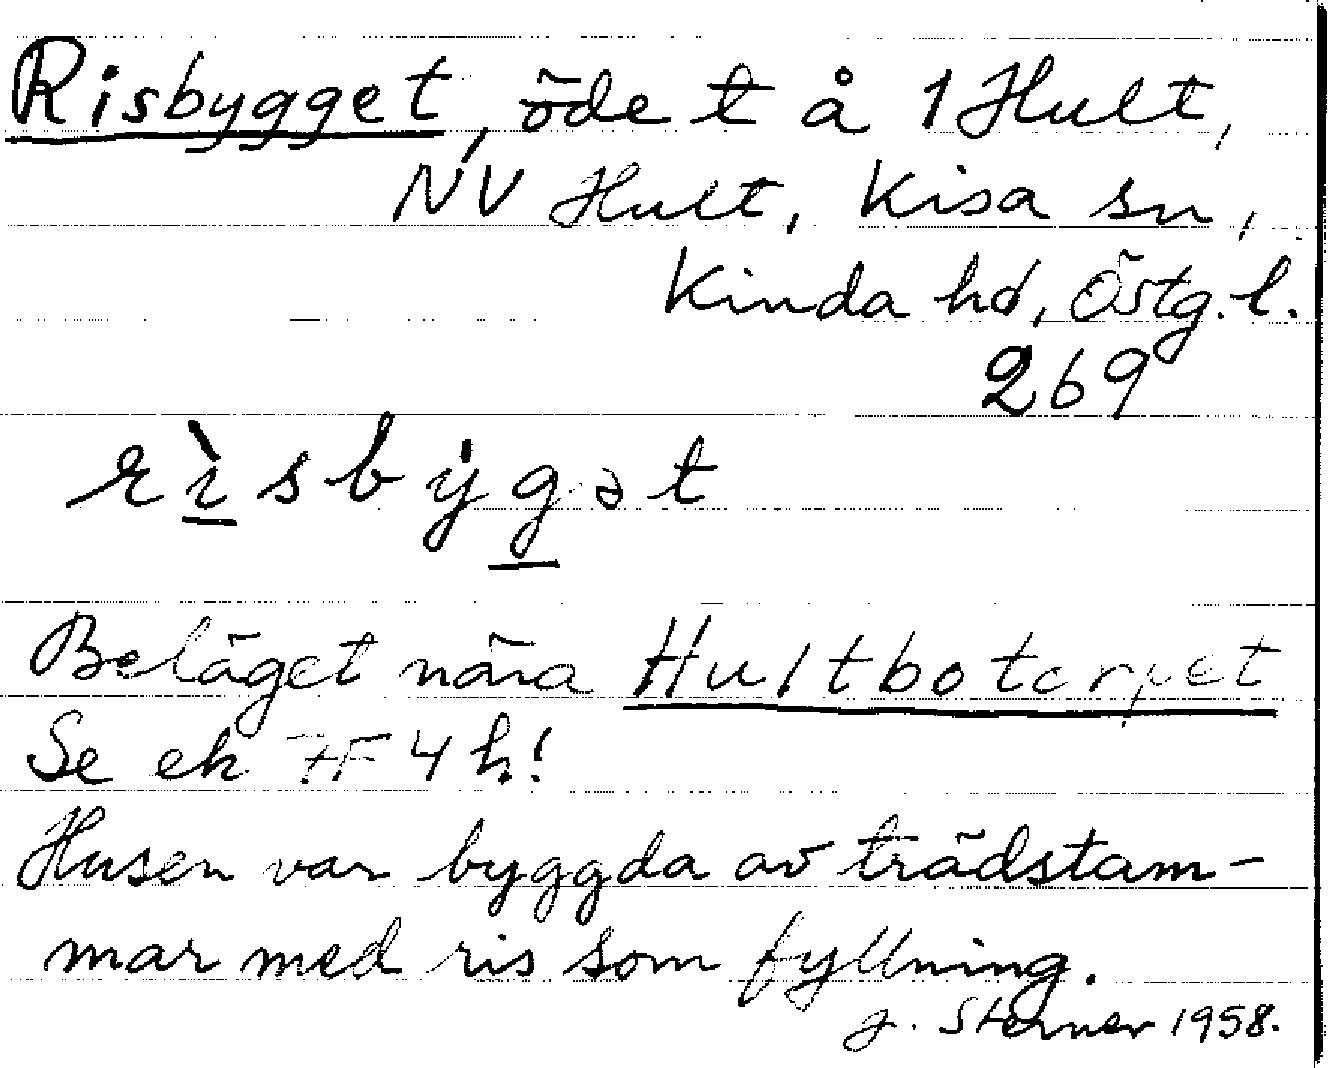 Risbygget, öde t å 1 Hult,
NV Hult, Kisa sn,
Kinda hd, Östg. l.
269
rìsbýgət
Beläget nära Hultbotorpet
Se ek 7F4h!
Husen var byggda av trädstam-
mar med ris som fyllning.
J. Sterner 1958.